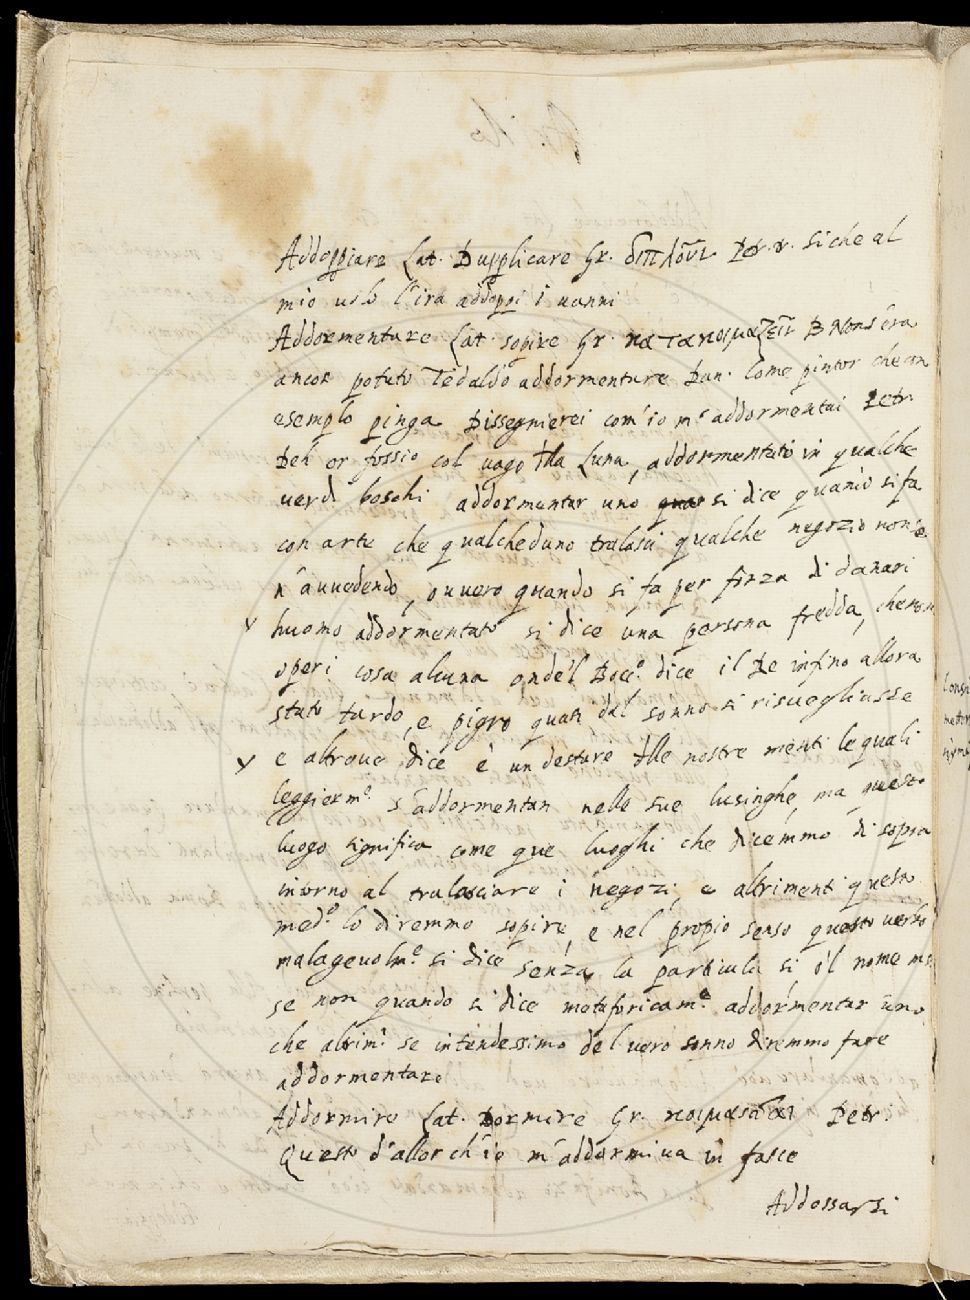 Addoppiare Lat. Dupplicare Gr. διπλοῦν Petr. Si che al
mio volo l'ira addoppi i vanni
Addormentare Lat. sopire Gr. κατακοιμαζειν B Non s'era
ancor potuto Tedaldo addormentare Dan. Come pintor che con
esemplo pinga Dissegnierei com'io m'addormentai Petr
Deh or foss'io col vago della Luna, addormentato in qualche
verdi boschi addormentar uno si dice quando si fa
con arte che qualcheduno tralasci qualche negozio non se
n'avvedendo, ovvero quando si fa per forza di danari
huomo addormentato si dice una persona fredda, che non
operi cosa alcuna ond'el Bocc.º dice il Re infino allora
stato tardo, e pigro quasi dal sonno si risvegliasse
e altrove dice è un destare delle nostre menti le quali
leggierm.e s'addormentan nelle sue lusinghe, ma questo
luogo significa come que luoghi che dicemmo di sopra
intorno al tralasciare i negozi, e altrimenti questo
med.º lo diremmo sopire, e nel propio senso questo verbo
malagevolm.e si dice senza la particula si, o'l nome mi
se non quando si dice metaforicam.e addormentar uno
che altrim.i se intendessimo del vero sonno diremmo fare
addormentare
Addormire Lat. Dormire Gr. κοιμᾶσθαι Petr
Questo d'allor ch'io m'addormiva in fasce
Addossarsi